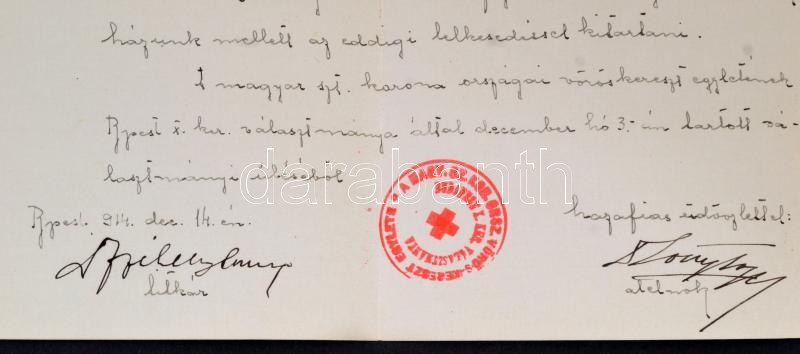 házunk mellett az eddigi lelkesedéssel kitartani.
A magyar szt. korona országai vöröskereszt egyletének
Bpest X. ker. választmánya által december hó 3.-án tartott vá-
lasztmányi üléséből
Bpest. 914. dec. 14. én. hazafias üdvözlettel:
titkár
alelnök
A MAGY. SZ. KOR. ORSZ. VÖRÖS-KERESZT EGYLETE
BUDAPEST X. KER. VÁLASZTMÁNYA
darabanth